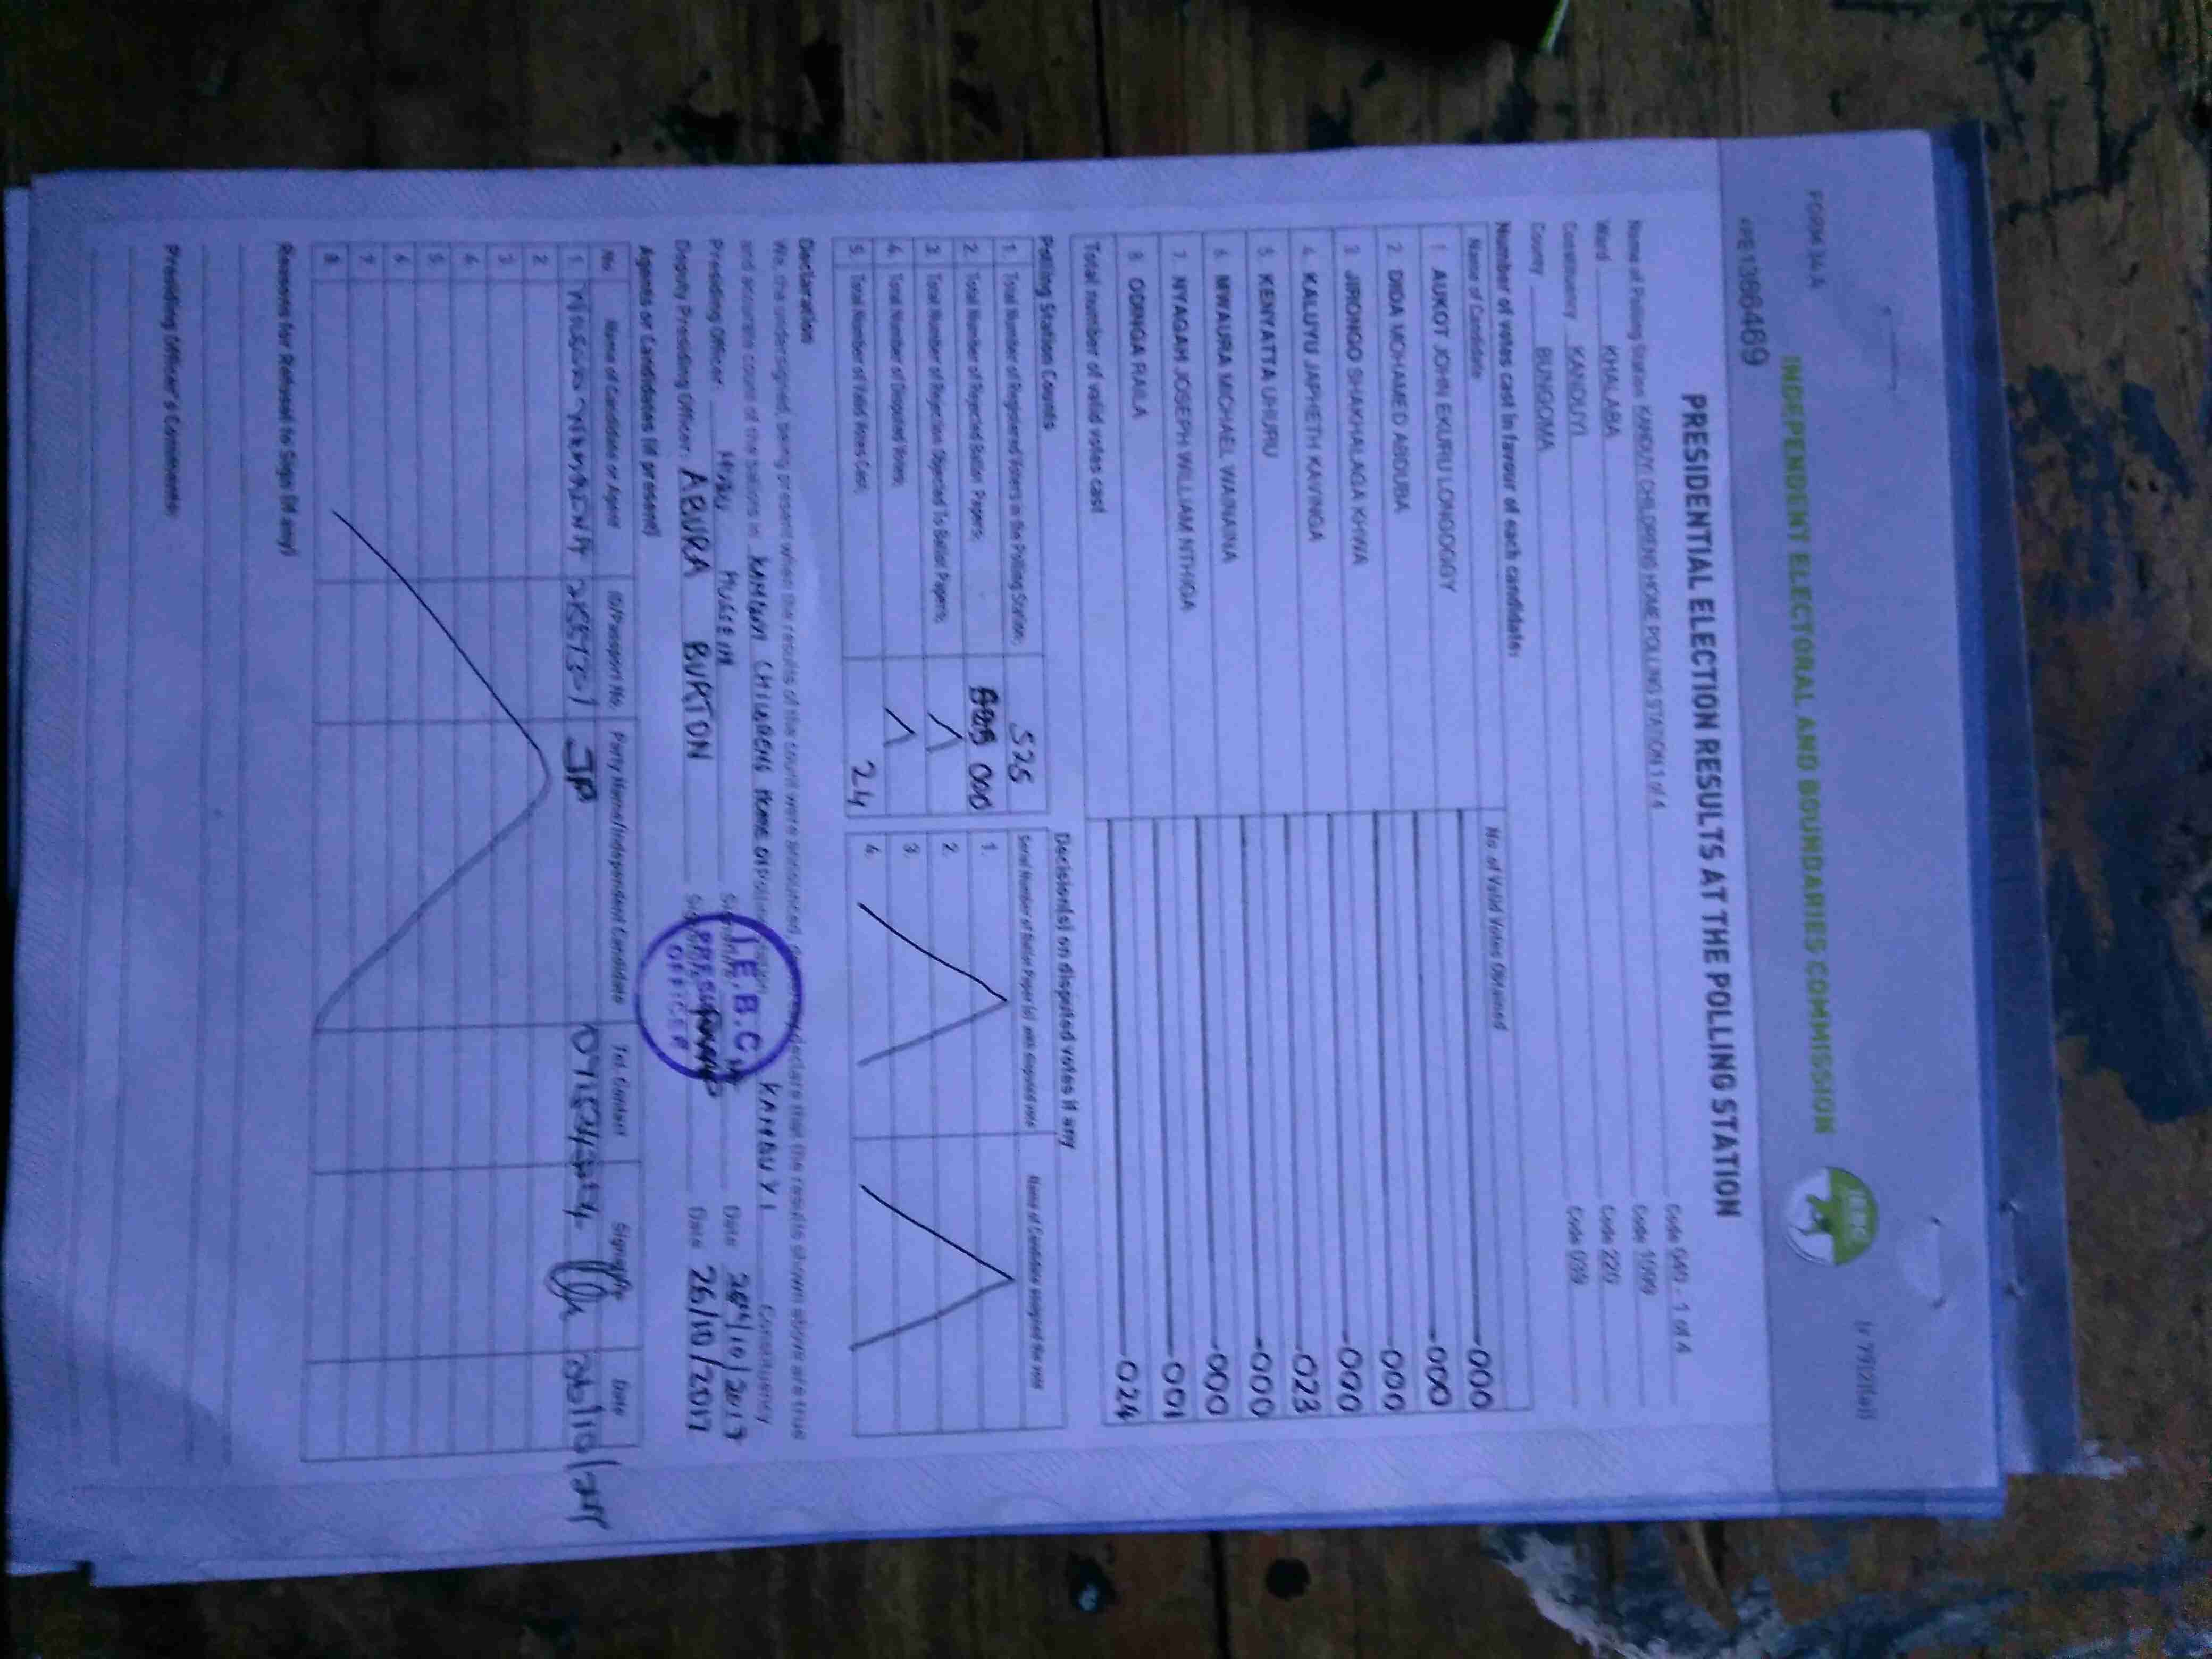 FORM 34A
INDEPENDENT ELECTORAL AND BOUNDARIES COMMISSION
IEBC
PRESIDENTIAL ELECTION RESULTS AT THE POLLING STATION
Name of Polling Station KANDUYI CHILDRENS HOME POLLING STATION 1 of 4 Code 040 - 1 of 4
Ward KHALABA Code 1099
Constituency KANDUYI Code 220
County BUNGOMA Code 039
Number of votes cast in favour of each candidate:
Name of Candidate No. of Valid Votes Obtained
1 AUKOT JOHN EKURU LONGOGGY 000
2 DIDA MOHAMED ABDUBA 000
3 JIRONGO SHAKHALAGA KHWA 000
4 KALUYU JAPHETH KAVINGA 000
5 KENYATTA UHURU 023
6 MWAURA MICHAEL WAINAINA 000
7 NYAGAH JOSEPH WILLIAM NTHIGA 000
8 ODINGA RAILA 001
Total number of valid votes cast 024
Polling Station Counts
1. Total Number of Registered Voters in the Polling Station; 525
2. Total Number of Rejected Ballot Papers; 000
3. Total Number of Rejection Objected To Ballot Papers;
4. Total Number of Disputed Votes;
5. Total Number of Valid Votes Cast; 24
Decision(s) on disputed votes if any
Serial Number of Ballot Paper (s) with disputed vote Name of Candidate assigned the vote
1.
2.
3.
4.
Declaration
We, the undersigned, being present when the results of the count were announced, declare that the results shown above are true
and accurate count of the ballots in KANDUYI CHILDRENS HOME KANDUYI Constituency
Presiding Officer: HUSSEIN Date /10/2017
Deputy Presiding Officer: ABURA BURTON Date 26/10/2017
I.E.B.C.
PRESIDING
OFFICER
Agents or Candidates (if present)
No. Name of Candidate or Agent ID/Passport No. Party Name/Independent Candidate Tel. Contact Signature Date
1. JP 26/10/2017
2.
3.
4.
5.
6.
7.
8.
Reasons for Refusal to Sign (if any)
Presiding Officer's Comments: